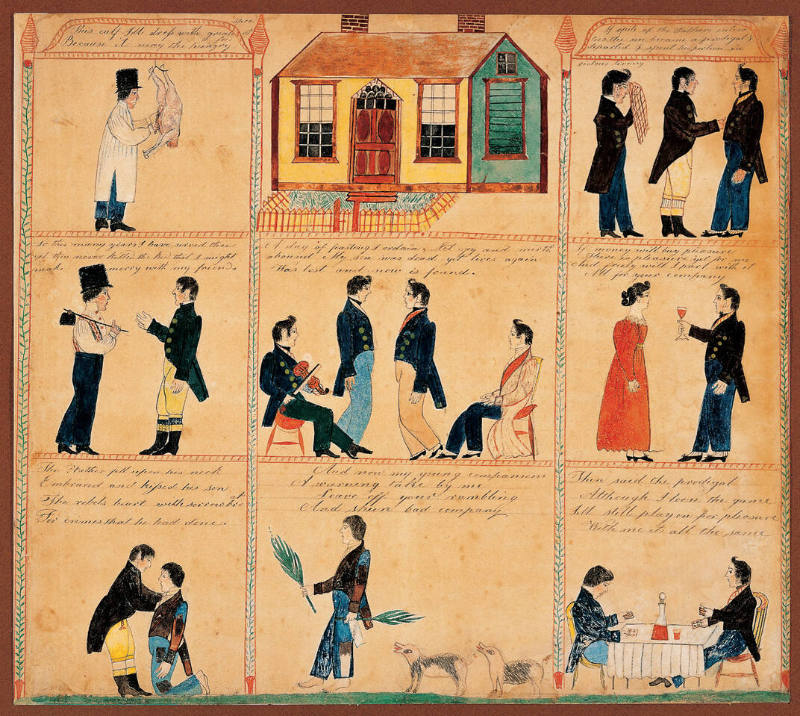 This calf Ill dress with great
Because it may the hungry
departed & spent his portion in
So this many years I have served thee
yet thou never killed the kid that I might
make merry with my friends
A day of feasting I ordain. Let joy and mirth
abound. My son was dead yet lives again
Was lost and now is found.
If money will buy pleasure
There is pleasure yet for me
And freely will I part with it
All for your company
The Father fell upon his neck
Embraced and kissed his son
The rebels heart with sorrow
For crimes that he had done.
And now my young companions
A warning take by me
Leave off your rambling
And shun bad company
Then said the prodigal
Although I loose the game
Ill still play on for pleasure
With me its all the same